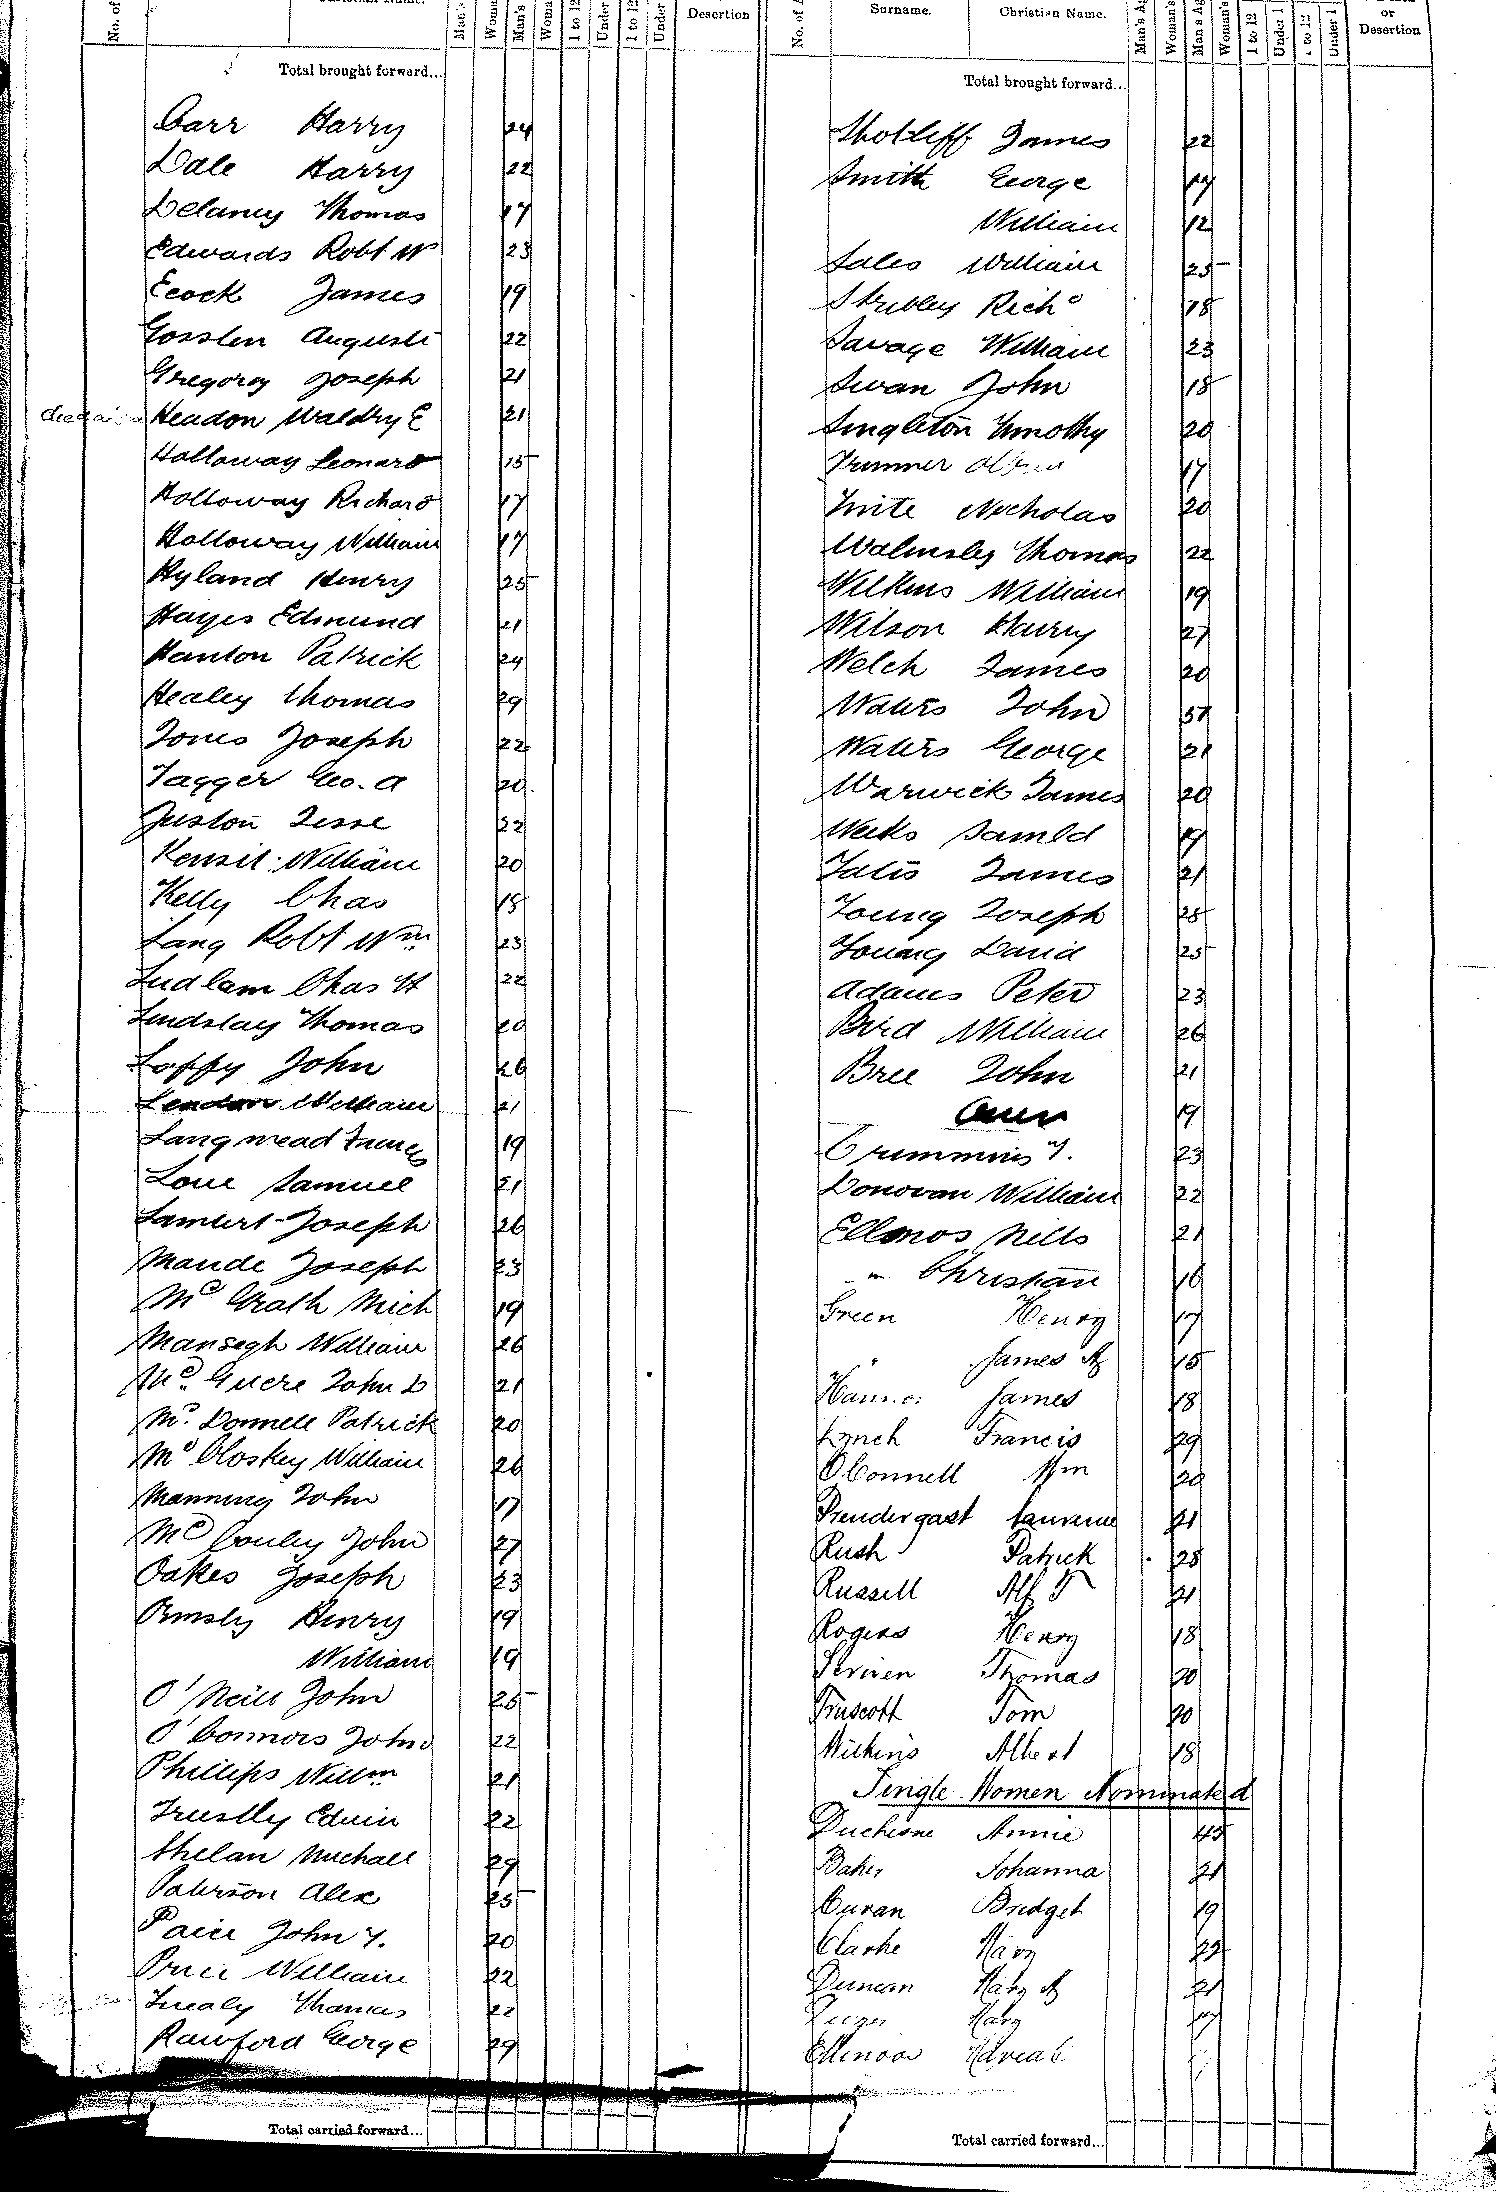 No. of
Woma
Man's
Woma
1 to 12
Under
1 to 12
Under
Desertion
Total brought forward...
Carr Harry 24
Dale Harry 22
Delaney Thomas 17
Edwards Robt W 23
Ecock James 19
Gosslen Augusti 22
Gregory Joseph 21
Headon Waldry E 21
Holloway Leonard 15
Holloway Richard 17
Holloway William 17
Hyland Henry 25
Hayes Edmund 21
Hanlon Patrick 24
Healey Thomas 29
Jones Joseph 22
Jagger Geo. A 20
Juston Jesse 22
Kensit William 20
Kelly Chas 18
Lang Robt Wm 23
Ludlam Chas H 22
Lindslay Thomas 20
Loffy John 26
William 21
Langmead James 19
Love Samuel 21
Lambert Joseph 26
Maude Joseph 23
McGrath Mich 19
Mansegh William 26
Mc. Guere John D 21
Mc. Donnell Patrick 20
McCloskey William 26
Manning John 17
McCouley John 27
Oakes Joseph 23
Ormsby Henry 19
William 19
O'Neill John 25
O'Connors John 22
Phillips Willm 21
Edwin 22
Phelan Michael 29
Paterson Alex 25
John 20
Price William 22
Thomas 22
Rawford George 29
Total carried forward...
No. of
Surname. Christian Name.
Man's Ag
Woman's
Man's Ag
Woman's
1 to 12
Under 1
1 to 12
Under 1
or
Desertion
Total brought forward...
Shotliff James 22
Smith George 17
William 12
Sales William 25
Stribley Richd 18
Savage William 23
Swan John 18
Singleton Timothy 20
Trimmer 17
Nicholas 20
Walmsley Thomas 22
Wilkins William 19
Wilson Harry 27
Welch James 20
Waters John 51
Waters George 21
Warwick James 20
Weeks Samld 19
James 21
Young Joseph 25
Young David 25
Adams Peter 23
Bird William 26
Bree John 21
Owen 19
Crummins T. 23
Donovan William 22
Ellmos Nills 21
" Christian 16
Green Henry 17
" James A 15
James 18
Lynch Francis 29
O'Connell Wm 20
Prendergast Laurence 21
Rush Patrick 28
Russell Alf T 21
Rogers Henry 18
Thomas 20
Truscott Tom 20
Wilkins Albert 18
Single Women Nominated
Duchesne Annie 45
Baker Johanna 21
Curan Bridget 19
Clarke Mary 22
Duncan Mary A 21
Mary
Ellmoos
Total carried forward...